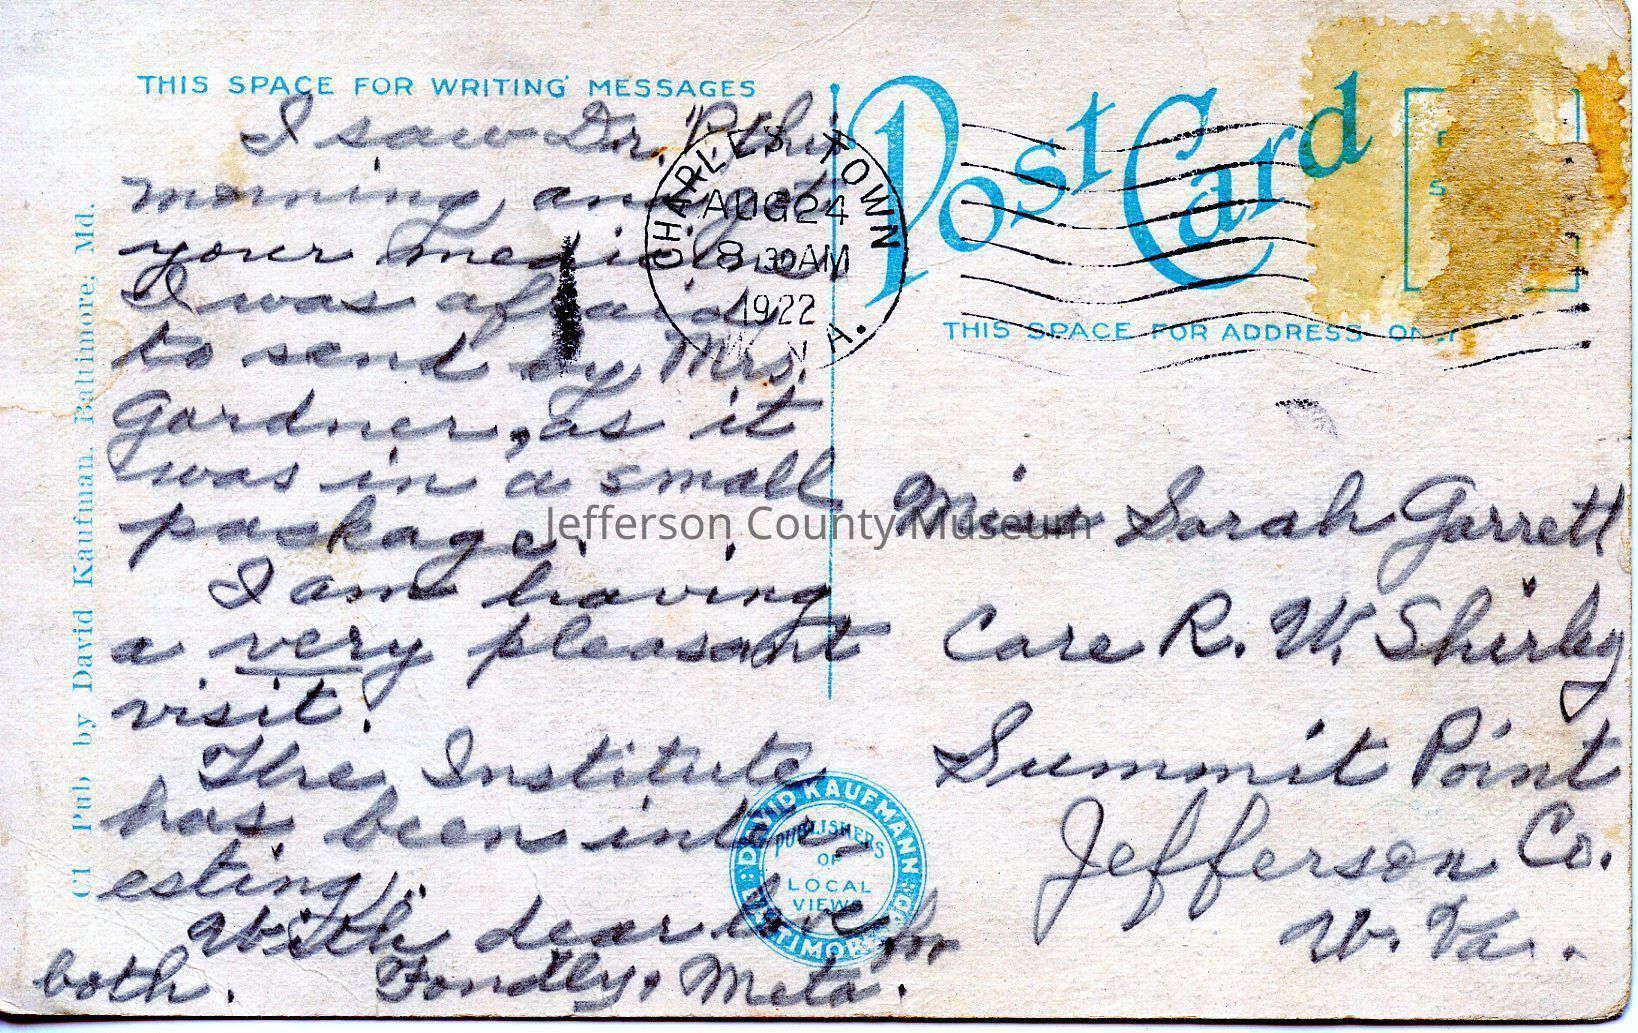 THIS SPACE FOR WRITING MESSAGES
I saw Dr. P. this
morning, and got
your medicine.
I was afraid
to send by Mrs.
Gardner, as it
was in a small
package.
I am having
a very pleasant
visit.
The Institute
has been inter-
esting.
With dear love
both. Fondly, Meta.
C1 Pub by David Kaufman. Baltimore, Md.
Post Card
CHARLES TOWN
AUG 24
8 30 AM
1922
W. VA.
THIS SPACE FOR ADDRESS ONLY
Miss Sarah Garrett
Care R. W. Shirley
Summit Point
Jefferson Co.
W. Va.
DAVID KAUFMANN
PUBLISHERS
OF
LOCAL
VIEWS
BALTIMORE
Jefferson County Museum